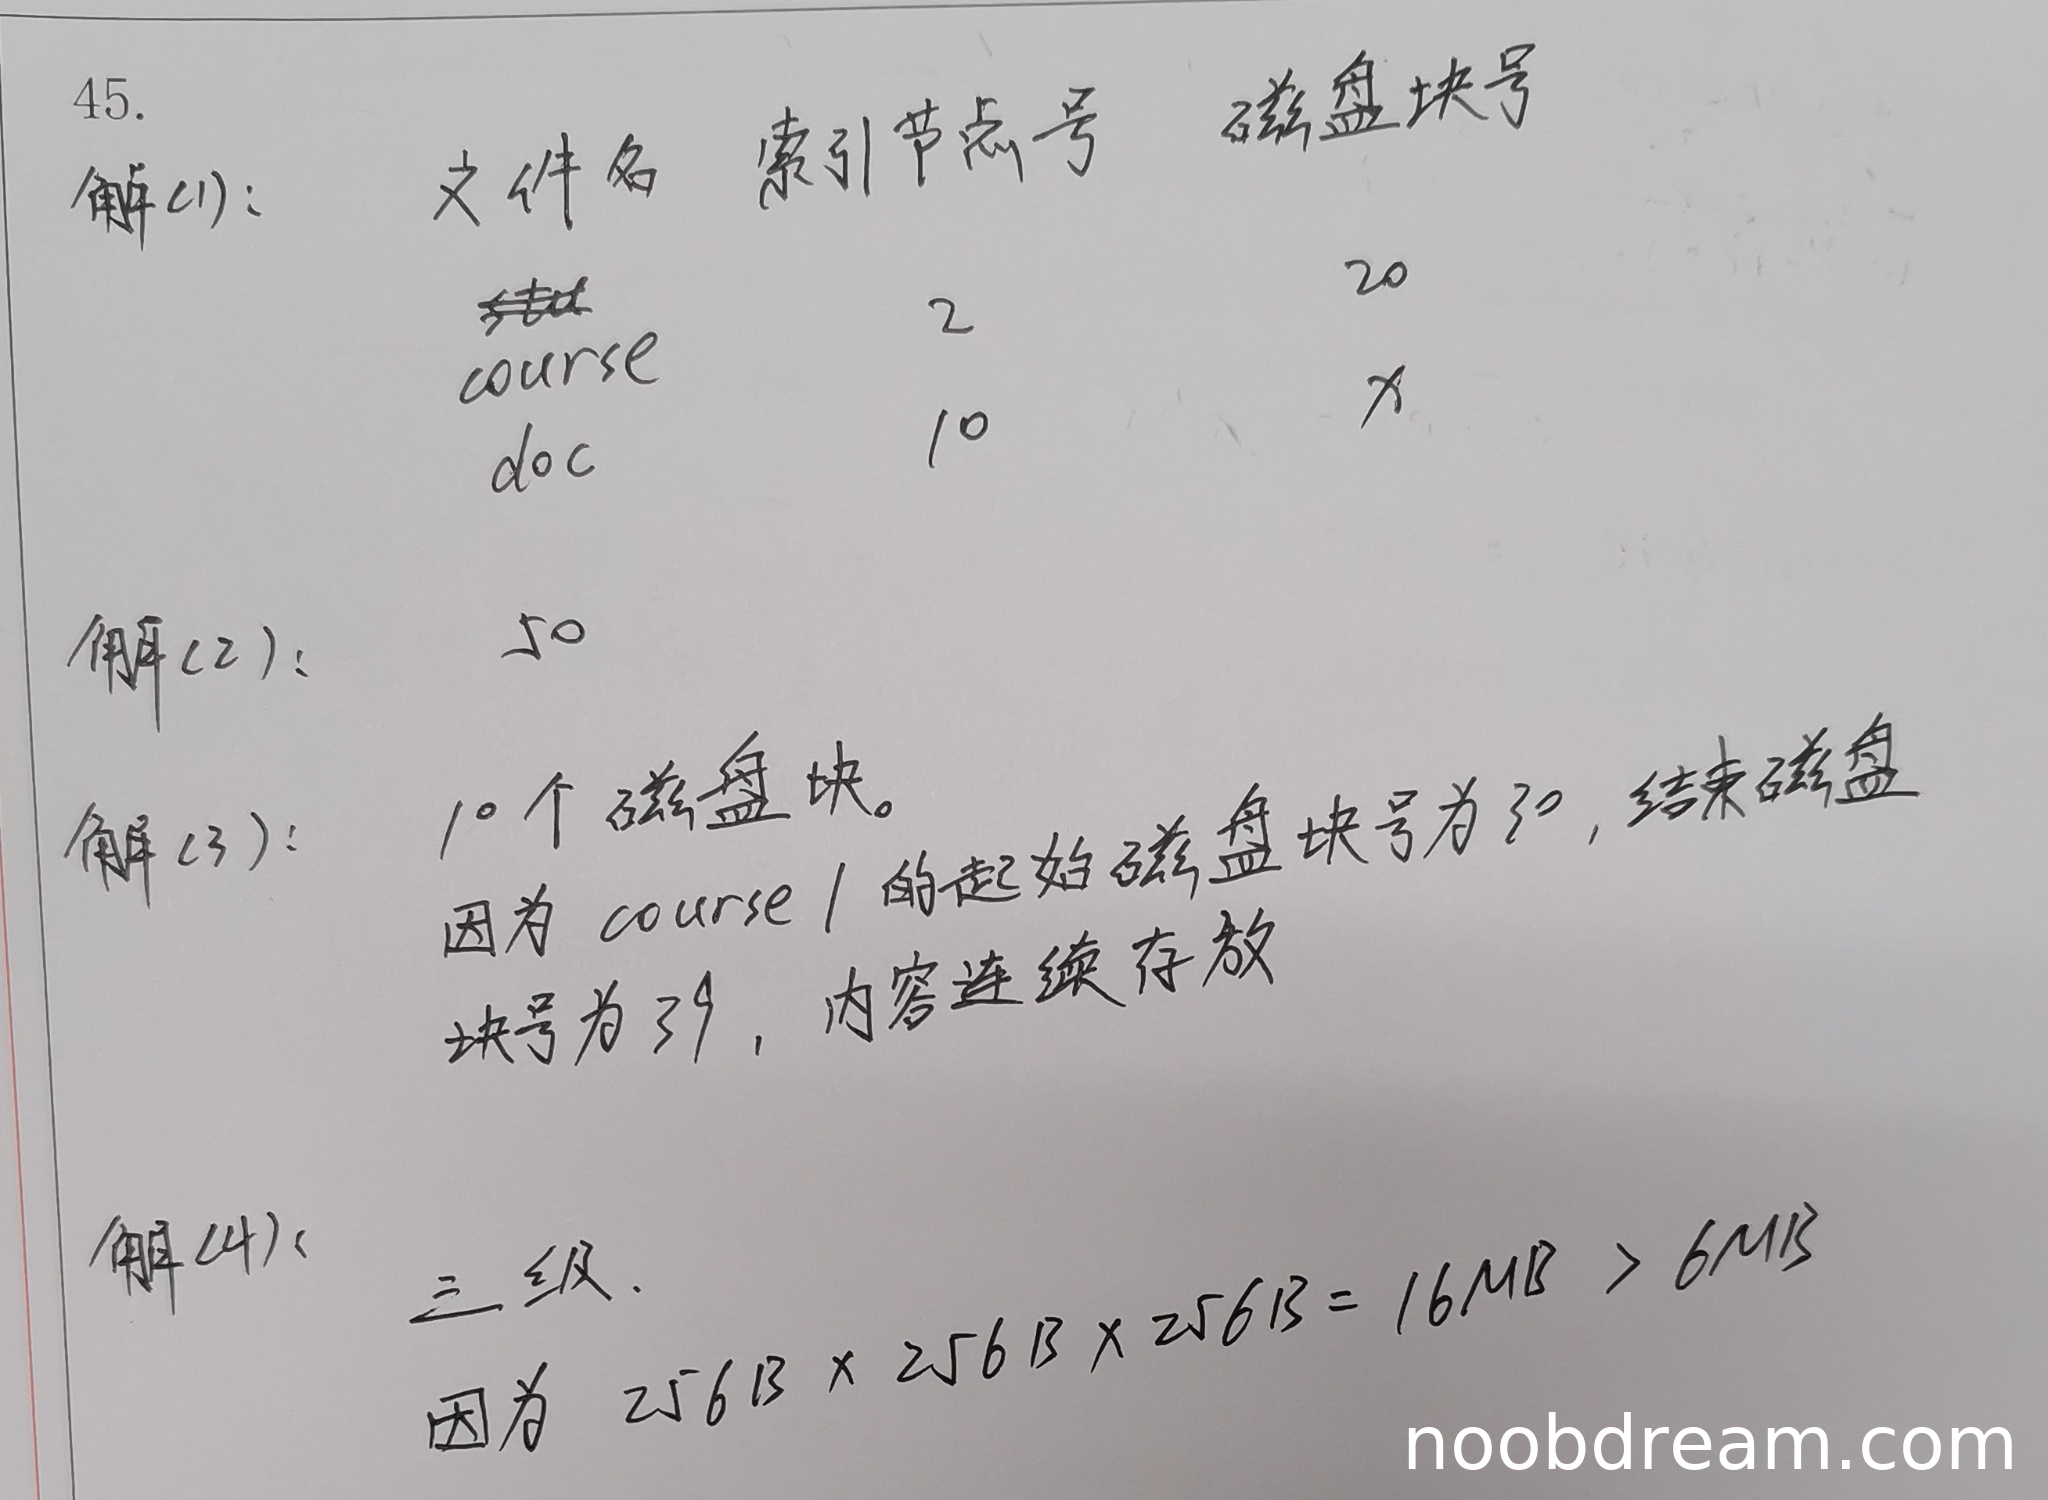 45.
解(1): 文件名 索引节点号 磁盘块号
course 2 20
doc 10 x
解(2): 50
解(3): 10个磁盘块。
因为course1的起始磁盘块号为30,结束磁盘
块号为39,内容连续存放
解(4): 三级.
因为 256B x 256B x 256B = 16MB > 6MB
noobdream.com